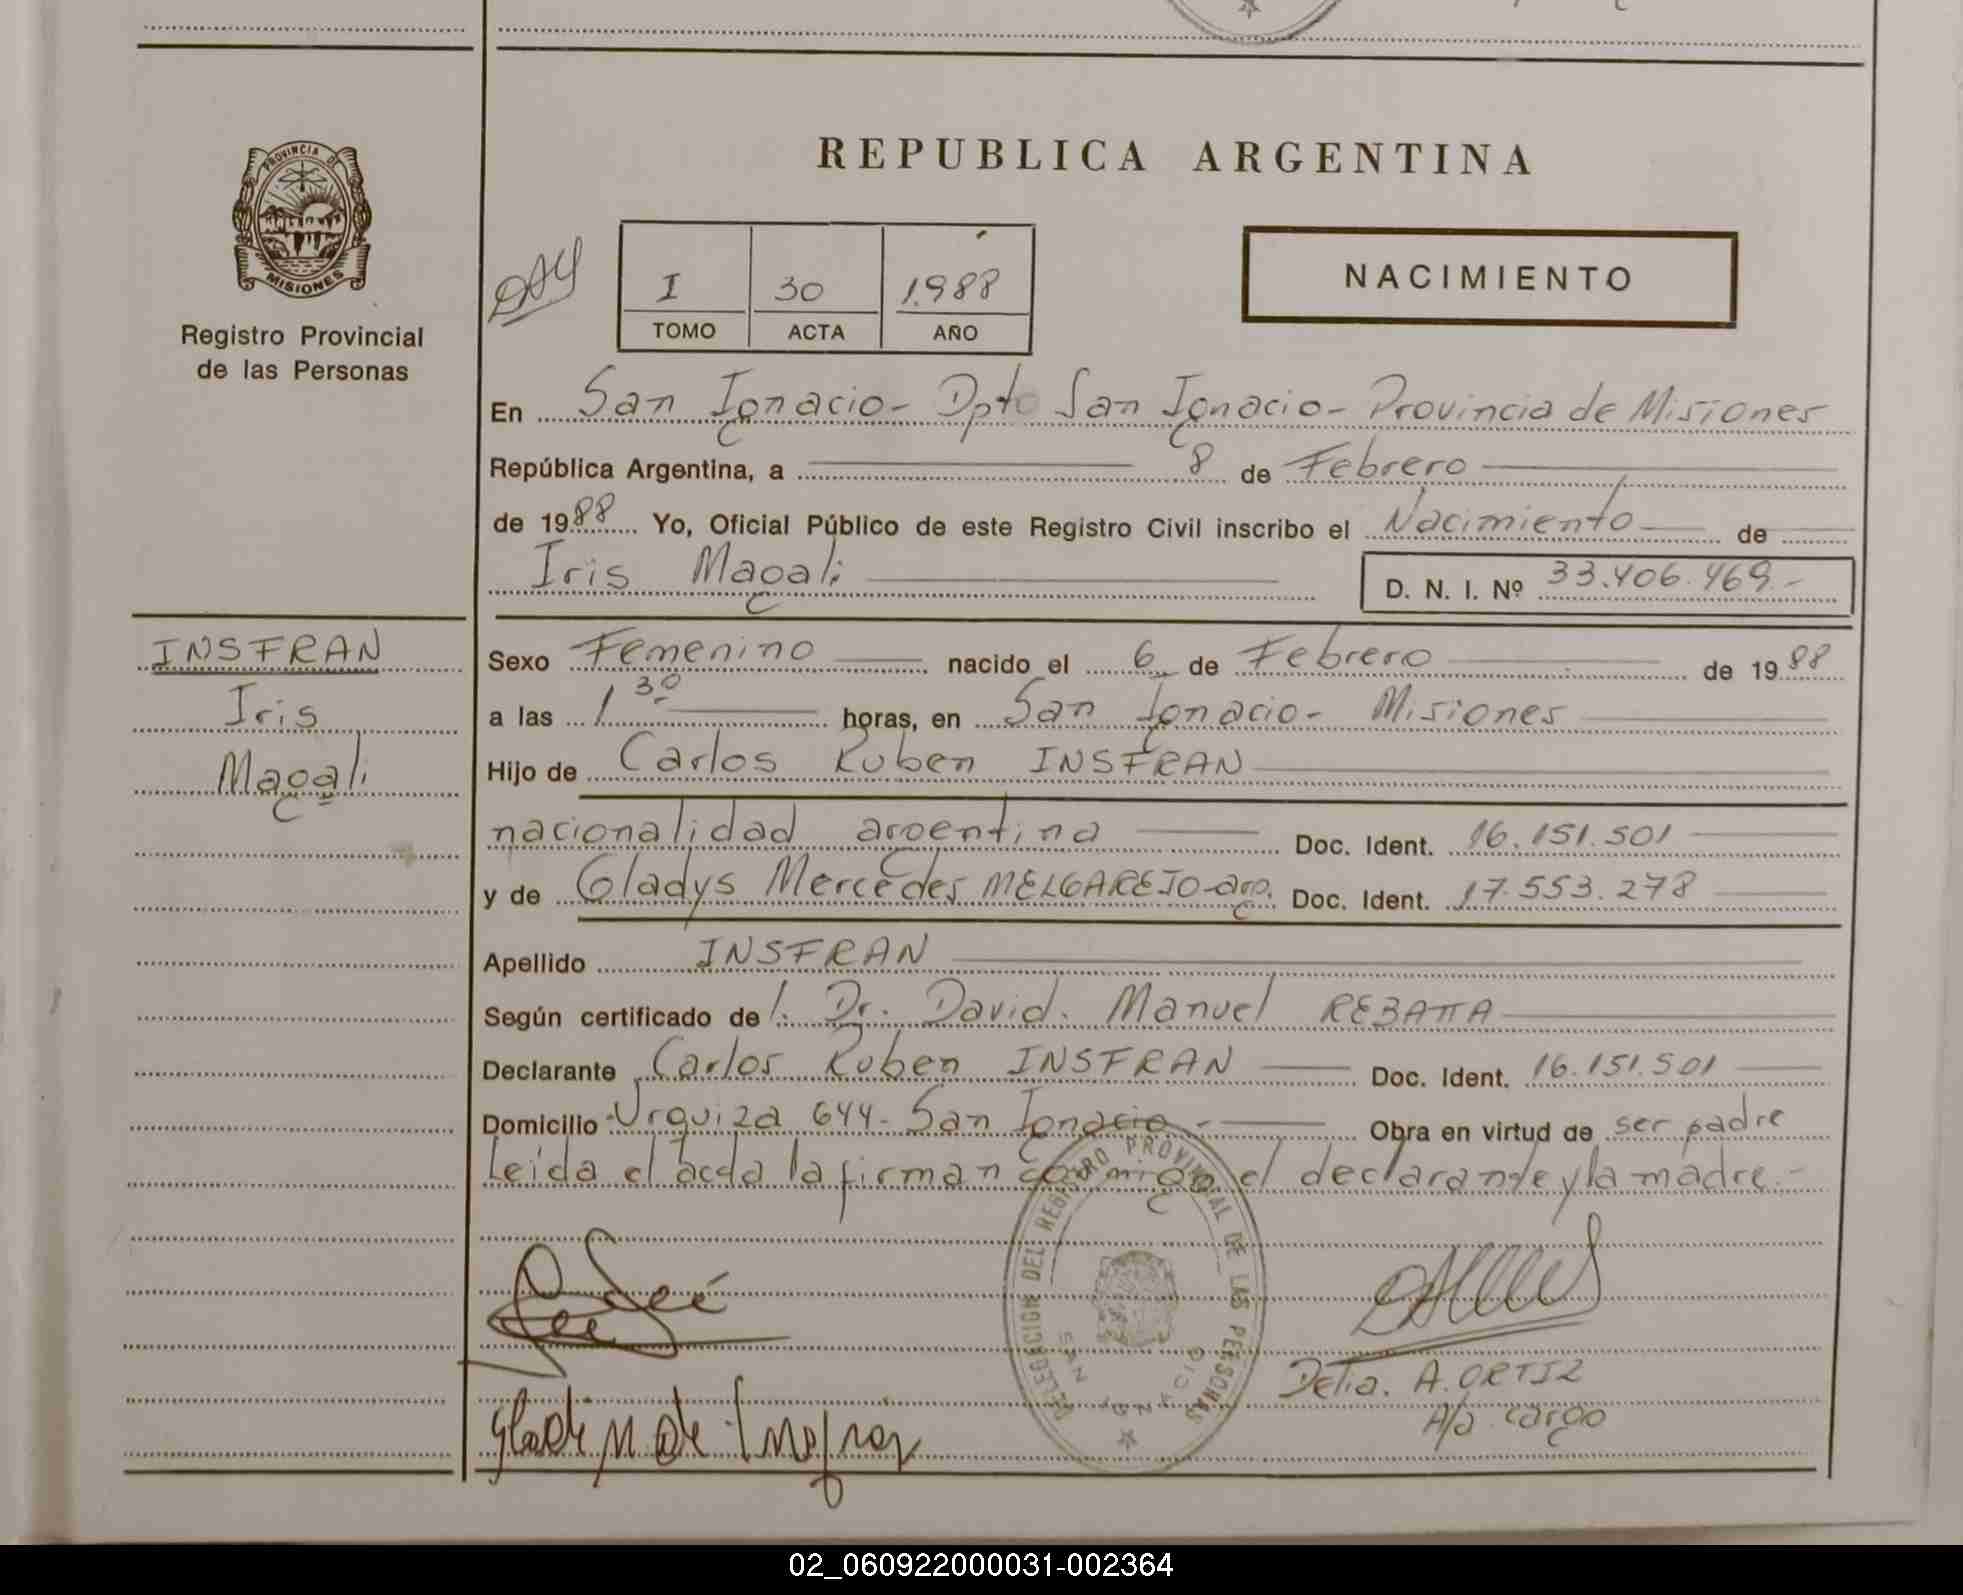 PROVINCIA DE
MISIONES
Registro Provincial
de las Personas
REPUBLICA ARGENTINA
I 30 1.988
TOMO ACTA AÑO
NACIMIENTO
En San Ignacio- Dpto San Ignacio- Provincia de Misiones
República Argentina, a 8 de Febrero
de 1988 Yo, Oficial Público de este Registro Civil inscribo el Nacimiento de
Iris Magali
D. N. I. Nº 33.406.469.-
INSFRAN
Iris
Magali
Sexo Femenino nacido el 6 de Febrero de 1988
a las 1 30 horas, en San Ignacio- Misiones
Hijo de Carlos Ruben INSFRAN
nacionalidad argentina Doc. Ident. 16.151.501
y de Gladys Mercedes MELGAREJO-arg. Doc. Ident. 17.553.278
Apellido INSFRAN
Según certificado de l: Dr. David. Manuel REBATTA
Declarante Carlos Ruben INSFRAN Doc. Ident. 16.151.501
Domicilio Urquiza 644- San Ignacio.- Obra en virtud de ser padre
Leida el acta la firman conmigo el declarante y la madre.-
DELEGACION DEL REGISTRO PROVINCIAL DE LAS PERSONAS
SAN IGNACIO
Delia. A. ORTIZ
A/a cargo
02_060922000031-002364